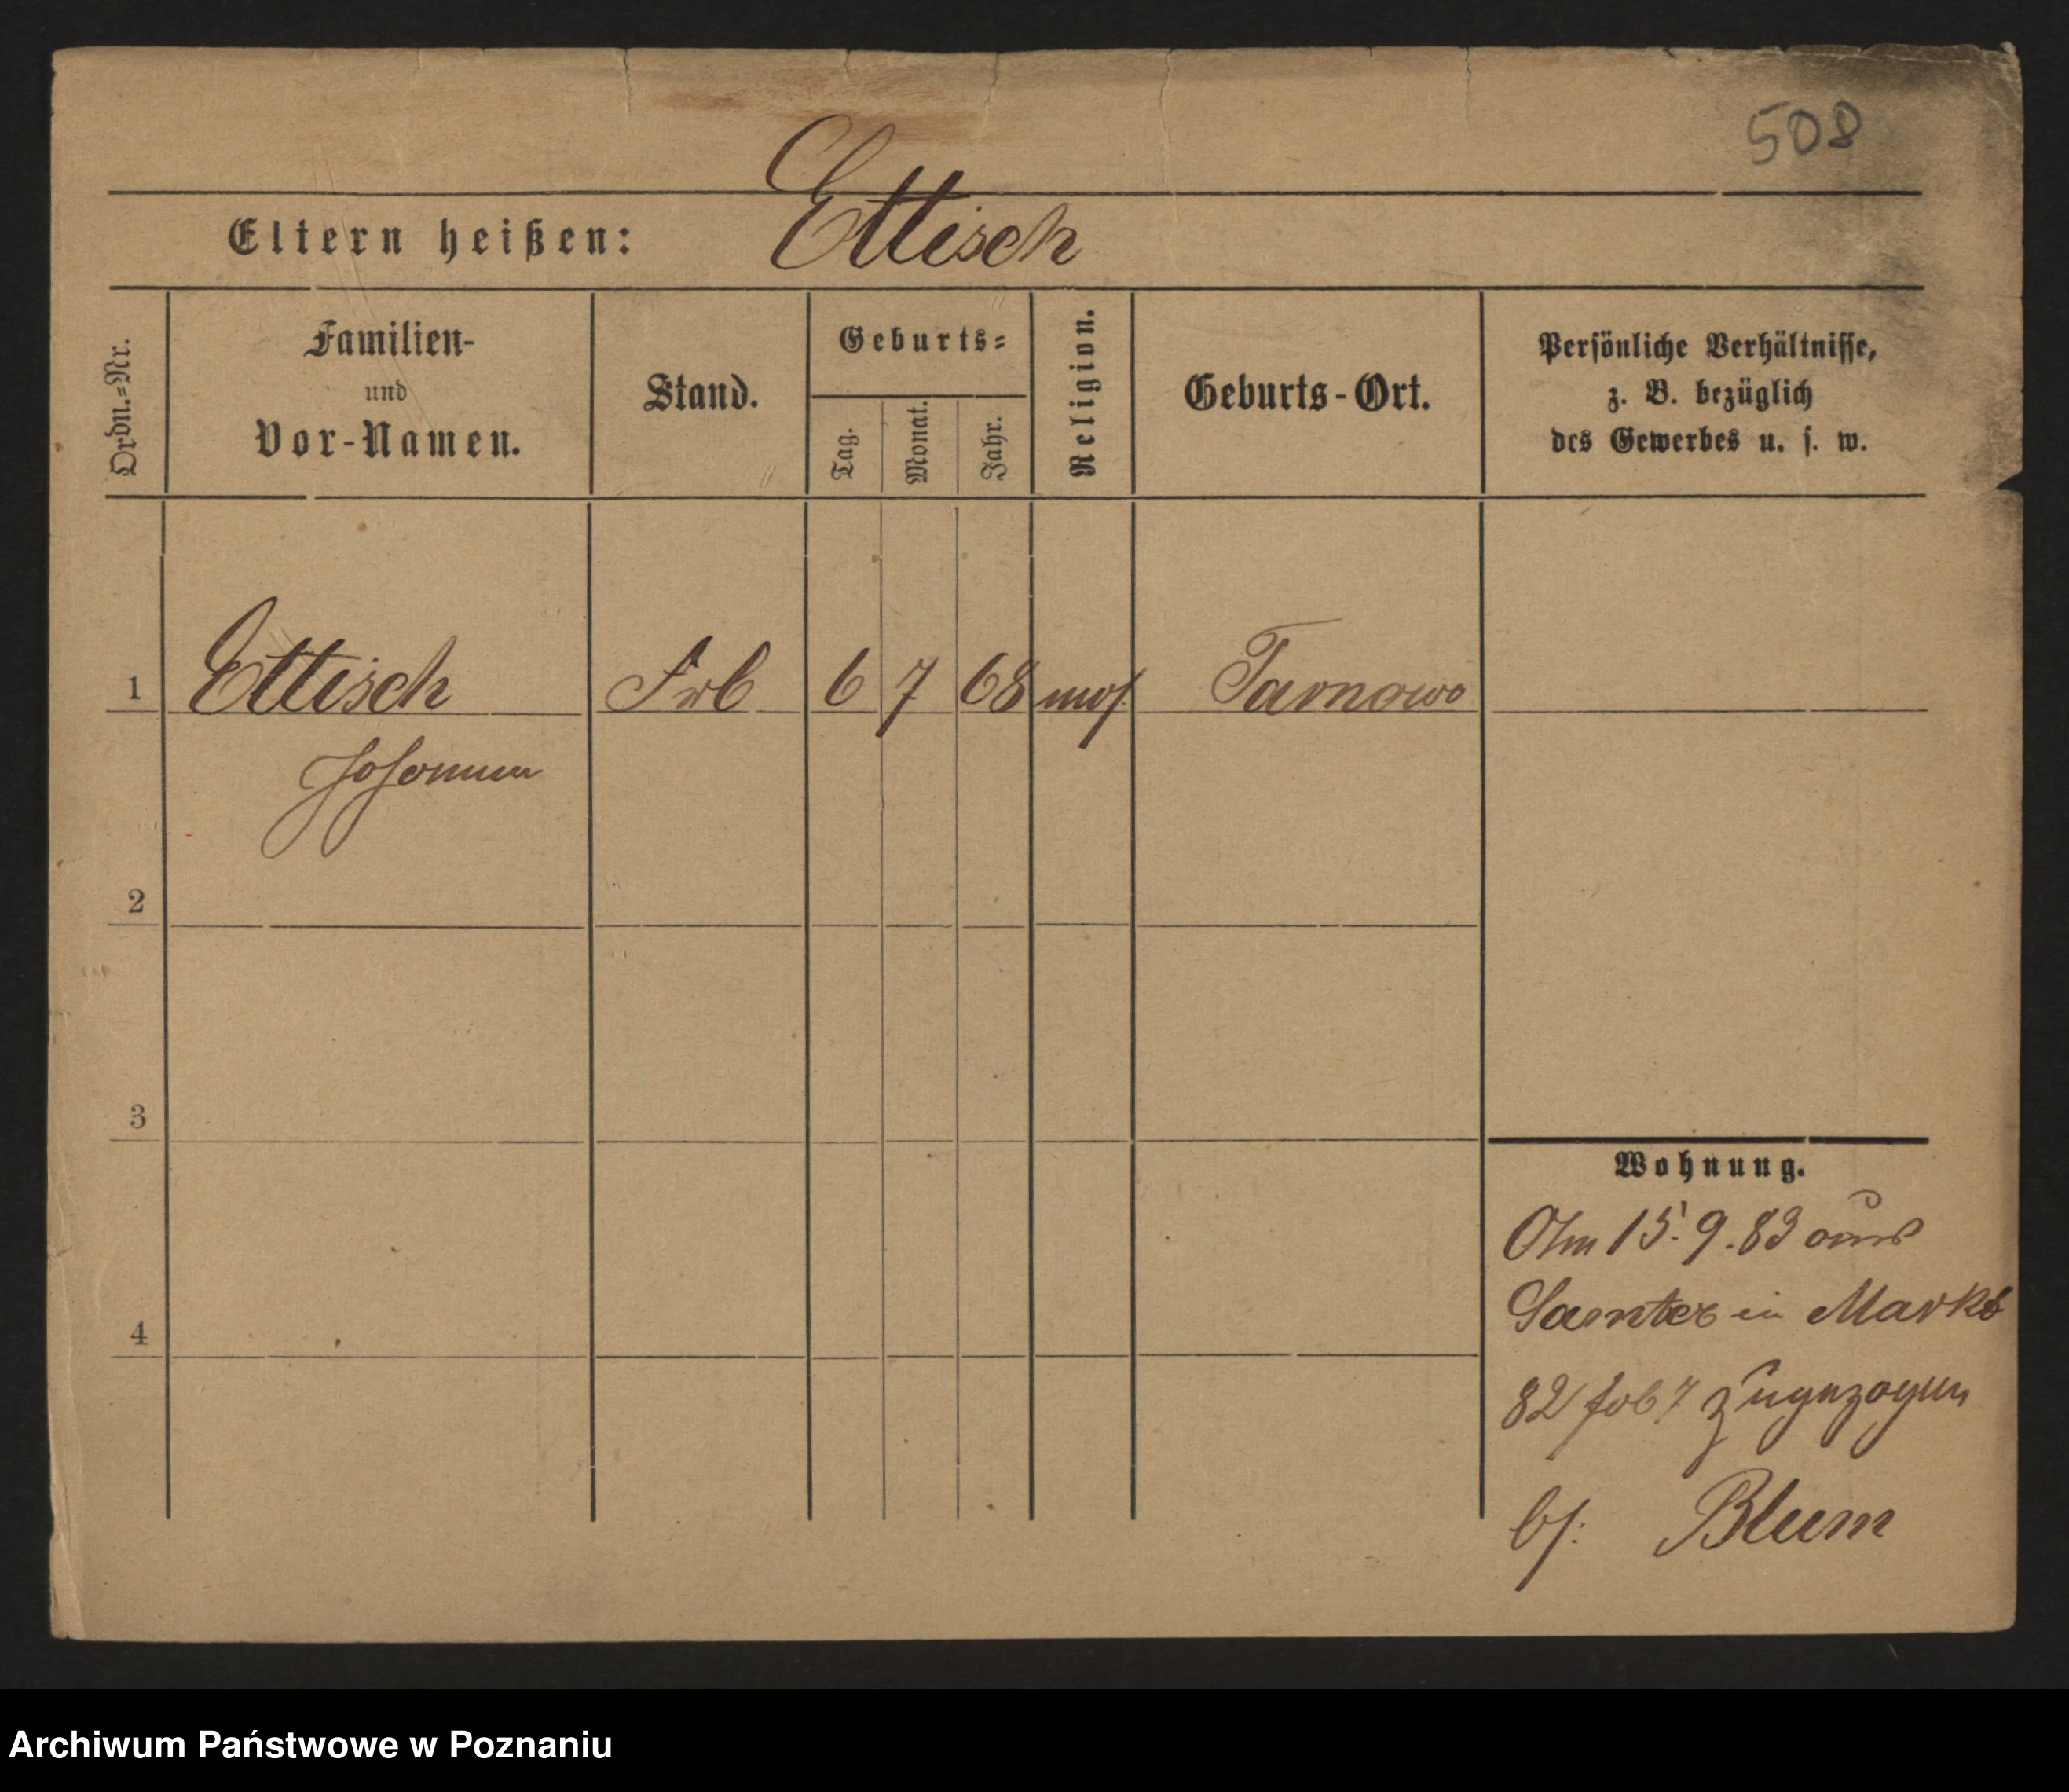 508
Eltern heißen: Ettisch
Ordn.=Nr.
Familien-
und
Vor-Namen.
Stand.
Geburts=
Tag.
Monat.
Jahr.
Religion.
Geburts-Ort.
Persönliche Verhältnisse,
z. B. bezüglich
des Gewerbes u. s. w.
1 Ettisch 6 7 68 mos. Tarnowo
Johanna
2
3
4
Wohnung.
Am 15.9.83 aus
Samter in Markt
82 zugezogen
bs: Blum
Archiwum Państwowe w Poznaniu